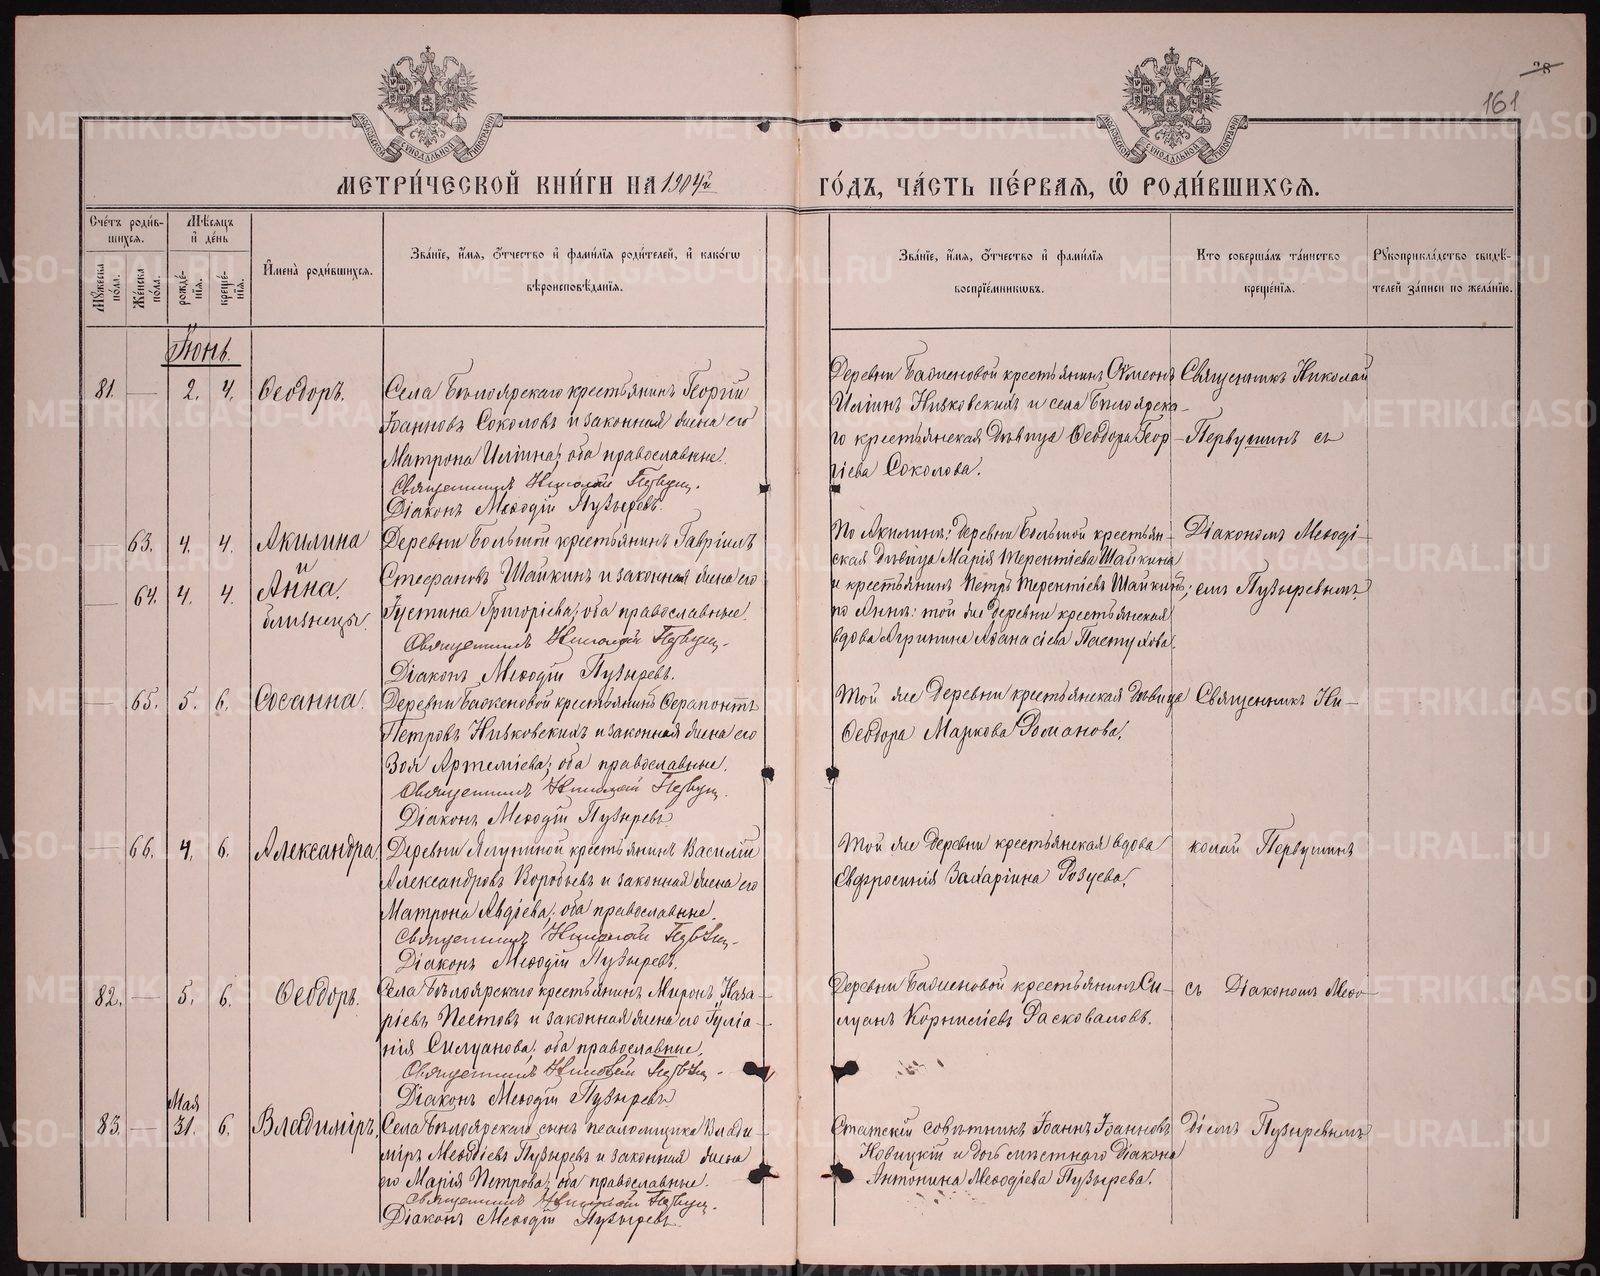 28
161
МЕТРИЧЕСКОЙ КНИГИ НА 1904й ГОДЪ, ЧАСТЬ ПЕРВАЯ, Ѡ РОДИВШИХСЯ.
Счетъ родив-
шихся.
Мѣсяцъ
и день
Мужеска пола.
Женска пола.
рожде-
нія.
креще-
нія.
Имена родившихся.
Званіе, имя, ѿчество и фамилія родителей, и какогѡ
вѣроисповѣданія.
Званіе, имя, ѿчество и фамилія
воспріемниковъ.
Кто совершалъ таинство
крещенія.
Рукоприкладство свидѣ-
телей записи по желанію.
Іюнь.
81. — 2. 4. Ѳеодоръ.
Села Бѣлоярскаго крестьянинъ Георгій
Іоанновъ Соколовъ и законная жена его
Матрона Иліина; оба православные.
Священникъ Николай Первушинъ.
Діаконъ Меѳодій Пузыревъ.
Деревни Баженовой крестьянинъ Симеонъ
Иліинъ Низковскихъ и села Бѣлоярска-
го крестьянская дѣвица Ѳеодора Геор-
гіева Соколова.
Священникъ Николай
Первушинъ съ
— 63. 4. 4. Акилина
и
— 64. 4. 4. Анна.
близнецы.
Деревни Большой крестьянинъ Гавріилъ
Стефановъ Шайкинъ и законная жена его
Іустина Григоріева; оба православные.
Священникъ Николай Первушинъ.
Діаконъ Меѳодій Пузыревъ.
По Акилинѣ: деревни Большой крестьян-
ская дѣвица Марія Терентіева Шайкина
и крестьянинъ Петръ Терентіевъ Шайкинъ;
по Аннѣ: той же деревни крестьянская
вдова Агрипина Аѳанасіева Пастухова.
Діакономъ Меѳоді-
емъ Пузыревымъ.
— 65. 5. 6. Сосанна.
Деревни Баженовой крестьянинъ Серапонтъ
Петровъ Низковскихъ и законная жена его
Зоя Артеміева; оба православные.
Священникъ Николай Первушинъ.
Діаконъ Меѳодій Пузыревъ
Той же деревни крестьянская дѣвица
Ѳеодора Маркова Романова.
Священникъ Ни-
— 66. 4. 6. Александра.
Деревни Ялуниной крестьянинъ Василій
Александровъ Воробьевъ и законная жена его
Матрона Авдіева; оба православные.
Священникъ Николай Первушинъ.
Діаконъ Меѳодій Пузыревъ.
Той же деревни крестьянская вдова
Евфросинія Захаріина
колай Первушинъ
82. — 5. 6. Ѳеодоръ.
Села Бѣлоярскаго крестьянинъ Миронъ Наза-
ріевъ Пестовъ и законная жена его Іуліа-
нія Силуанова; оба православные.
Священникъ Николай Первушинъ.
Діаконъ Меѳодій Пузыревъ
Деревни Баженовой крестьянинъ Си-
луанъ Корниліевъ Расковаловъ.
съ Діакономъ Меѳо-
Мая
83. — 31. 6. Владиміръ.
Села Бѣлоярскаго сынъ псаломщика Влади-
міръ Меѳодіевъ Пузыревъ и законная жена
его Марія Петрова; оба православные.
Священникъ Николай Первушинъ.
Діаконъ Меѳодій Пузыревъ
Статскій совѣтникъ Іоаннъ Іоанновъ
Новицкій и дочь мѣстнаго діакона
Антонина Меѳодіева Пузырева.
діемъ Пузыревымъ
METRIKI.GASO-URAL.RU